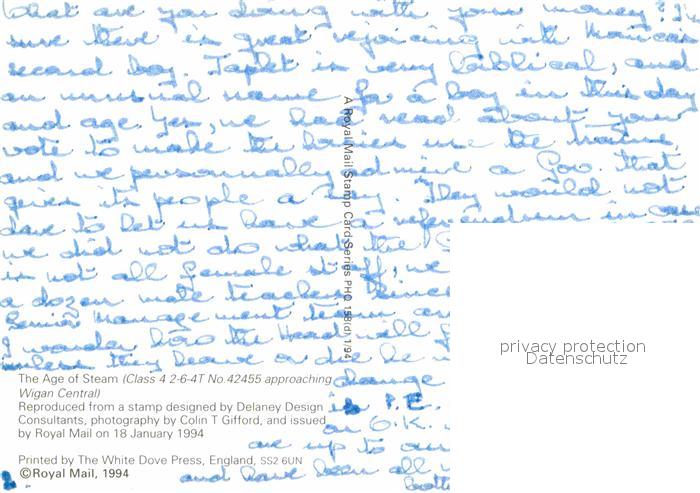 What are you doing with your money? I'm
sure there is great rejoicing with
second boy. is very biblical, and
an unusual name for a boy in this day
and age. Yes, we had read about your
vote to make the use the trains,
and we personally admire a Gov that
gives its people a say. They would not
dare to let us have a referendum in case
we did not do what the
is not all female staff, we
a dozen male teachers. Since
Senior management team
I wonder how the Head will
unless they leave or die be
change
in P.E.
an O.K.
are up to
and have been all
The Age of Steam (Class 4 2-6-4T No.42455 approaching
Wigan Central)
Reproduced from a stamp designed by Delaney Design
Consultants, photography by Colin T Gifford, and issued
by Royal Mail on 18 January 1994
Printed by The White Dove Press, England, SS2 6UN
©Royal Mail, 1994
A Royal Mail Stamp Card Series PHQ 158(d) 1/94
privacy protection
Datenschutz